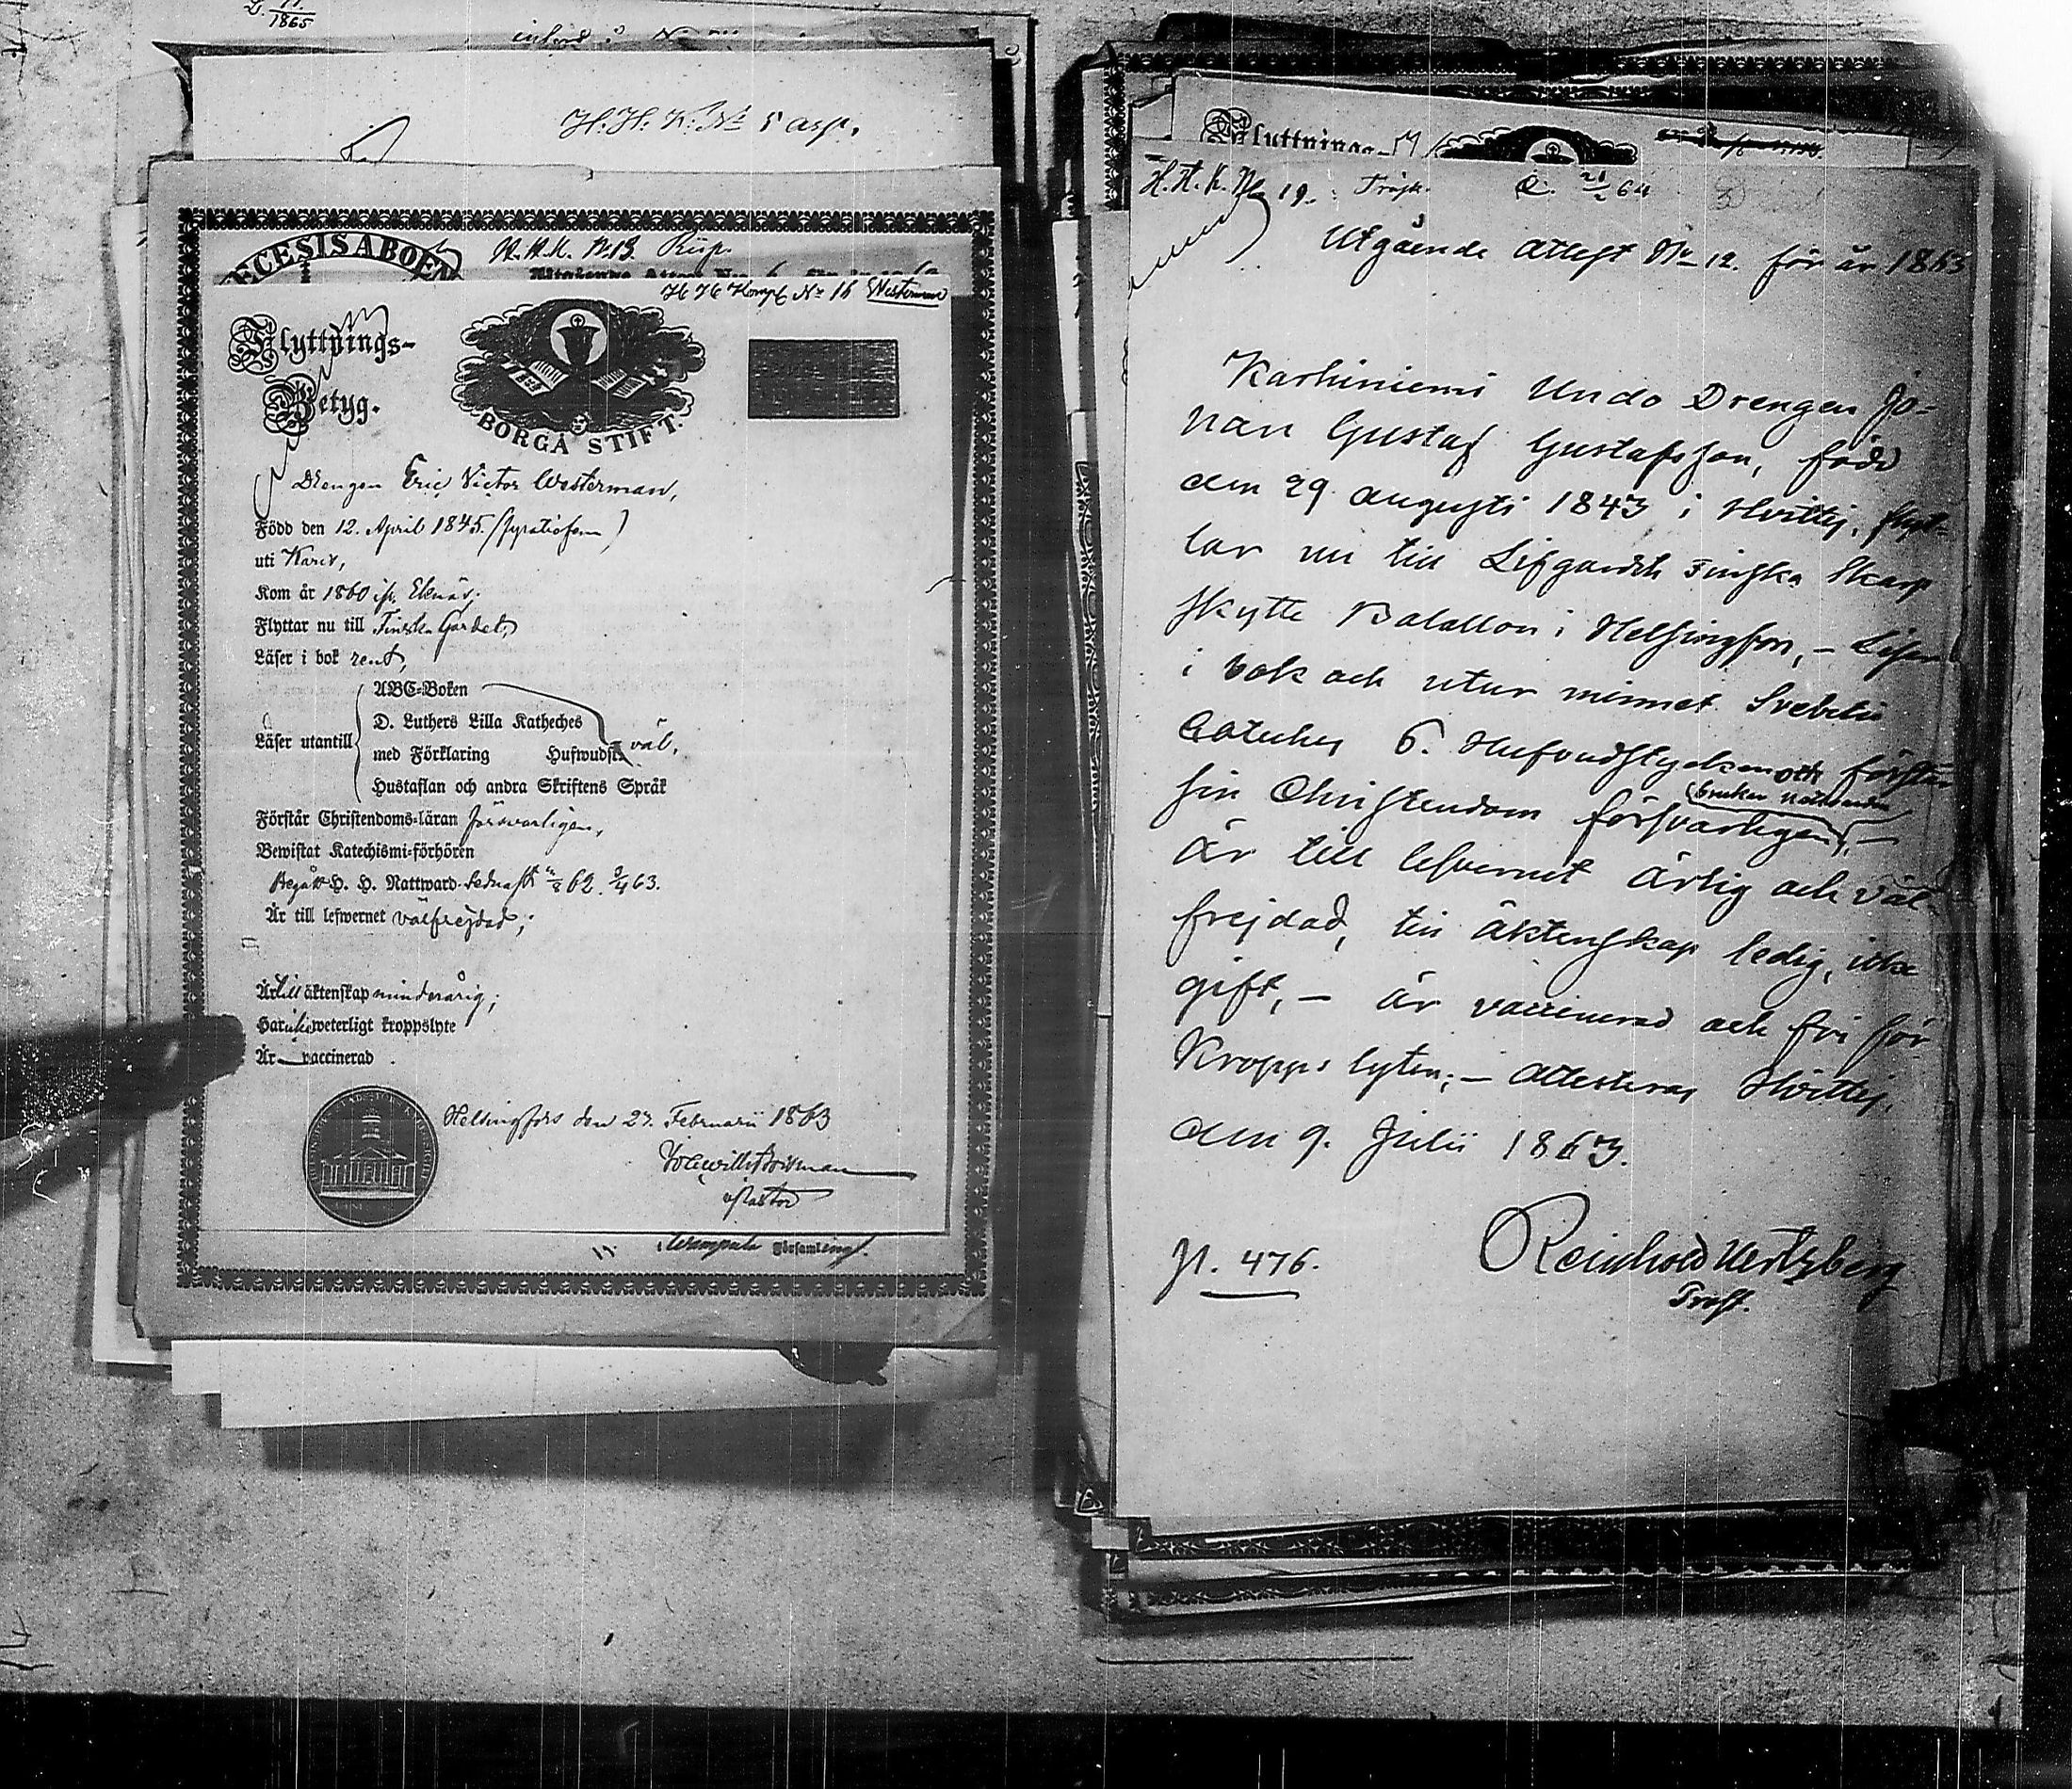 11
1865
H. H. K. No 5 Asp.
ECESIS ABOEN
H. H. K. No 13.
H H Komp No 16 Westerman
Flyttnings-
Betyg.
BORGÅ STIFT.
Drengen Eric Victor Westerman,
Född den 12. April 1845.
uti Karis,
Kom år 1860 ifr. Ekenäs;
Flyttar nu till Finska Gardet,
Läser i bok rent,
ABC-Boken
D. Luthers Lilla Katheches
Läser utantill
med Förklaring Hufwudst. väl,
Hustaflan och andra Skriftens Språk
Förstår Christendoms-läran försvarligen,
Bewistat Katechismi-förhören
Begått H. H. Nattward sednast 62. 63.
Är till lefwernet välfrejdad;
Är till äktenskap minderårig;
Har icke weterligt kroppslyte
Är vaccinerad.
Helsingfors den 23. Februarii 1863
Pastor
Församling
Flyttnings-
H. H. K. No 19. Träsk. 64
Utgående Attest No 12. för år 1863
Karhiniemi Undo Drengen Jo-
han Gustaf Gustafsson, född
den 29 Augusti 1843 i Hvittis, flyt-
tar nu till Lifgardets Finska Skarp
skytte Batallion i Helsingfors, – Läser
i bok och utur minnet Svebilii
Cateches 6. Hufvudstycken och förstår
brukar nattvarden
sin Christendom försvarligen, –
är till lefvernet ärlig och väl-
frejdad, till äktenskap ledig, icke
gift, – är vaccinerad och fri för
Kropps lyten; – attesteras Hvittis
den 9. Julii 1863.
p. 476.
Reinhold Hertzberg
Prost.